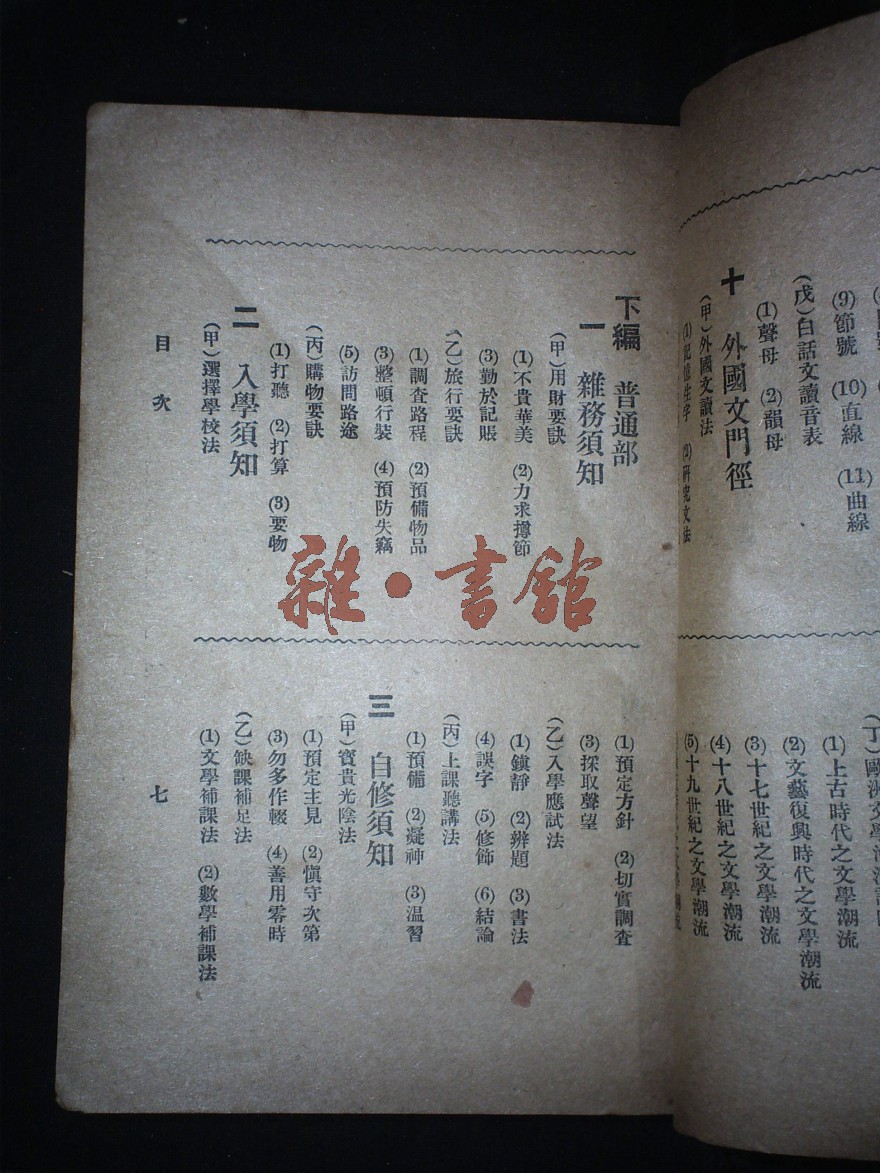 (9)節號 (10)直線 (11)曲線
(戊)白話文讀音表
(1)聲母 (2)韻母
十 外國文門徑
(甲)外國文讀法
(1)記憶生字 (2)研究文法
(1)上古時代之文學潮流
(2)文藝復興時代之文學潮流
(3)十七世紀之文學潮流
(4)十八世紀之文學潮流
(5)十九世紀之文學潮流
下編 普通部
一 雜務須知
(甲)用財要訣
(1)不貴華美 (2)力求撙節
(3)勤於記賬
(乙)旅行要訣
(1)調查路程 (2)預備物品
(3)整頓行裝 (4)預防失竊
(5)訪問路途
(丙)購物要訣
(1)打聽 (2)打算 (3)要物
二 入學須知
(甲)選擇學校法
(1)預定方針 (2)切實調查
(3)採取聲望
(乙)入學應試法
(1)鎮靜 (2)辨題 (3)書法
(4)誤字 (5)修飾 (6)結論
(丙)上課聽講法
(1)預備 (2)凝神 (3)温習
三 自修須知
(甲)寶貴光陰法
(1)預定主見 (2)慎守次第
(3)勿多作輟 (4)善用零時
(乙)缺課補足法
(1)文學補課法 (2)數學補課法
目次
七
雜·書館